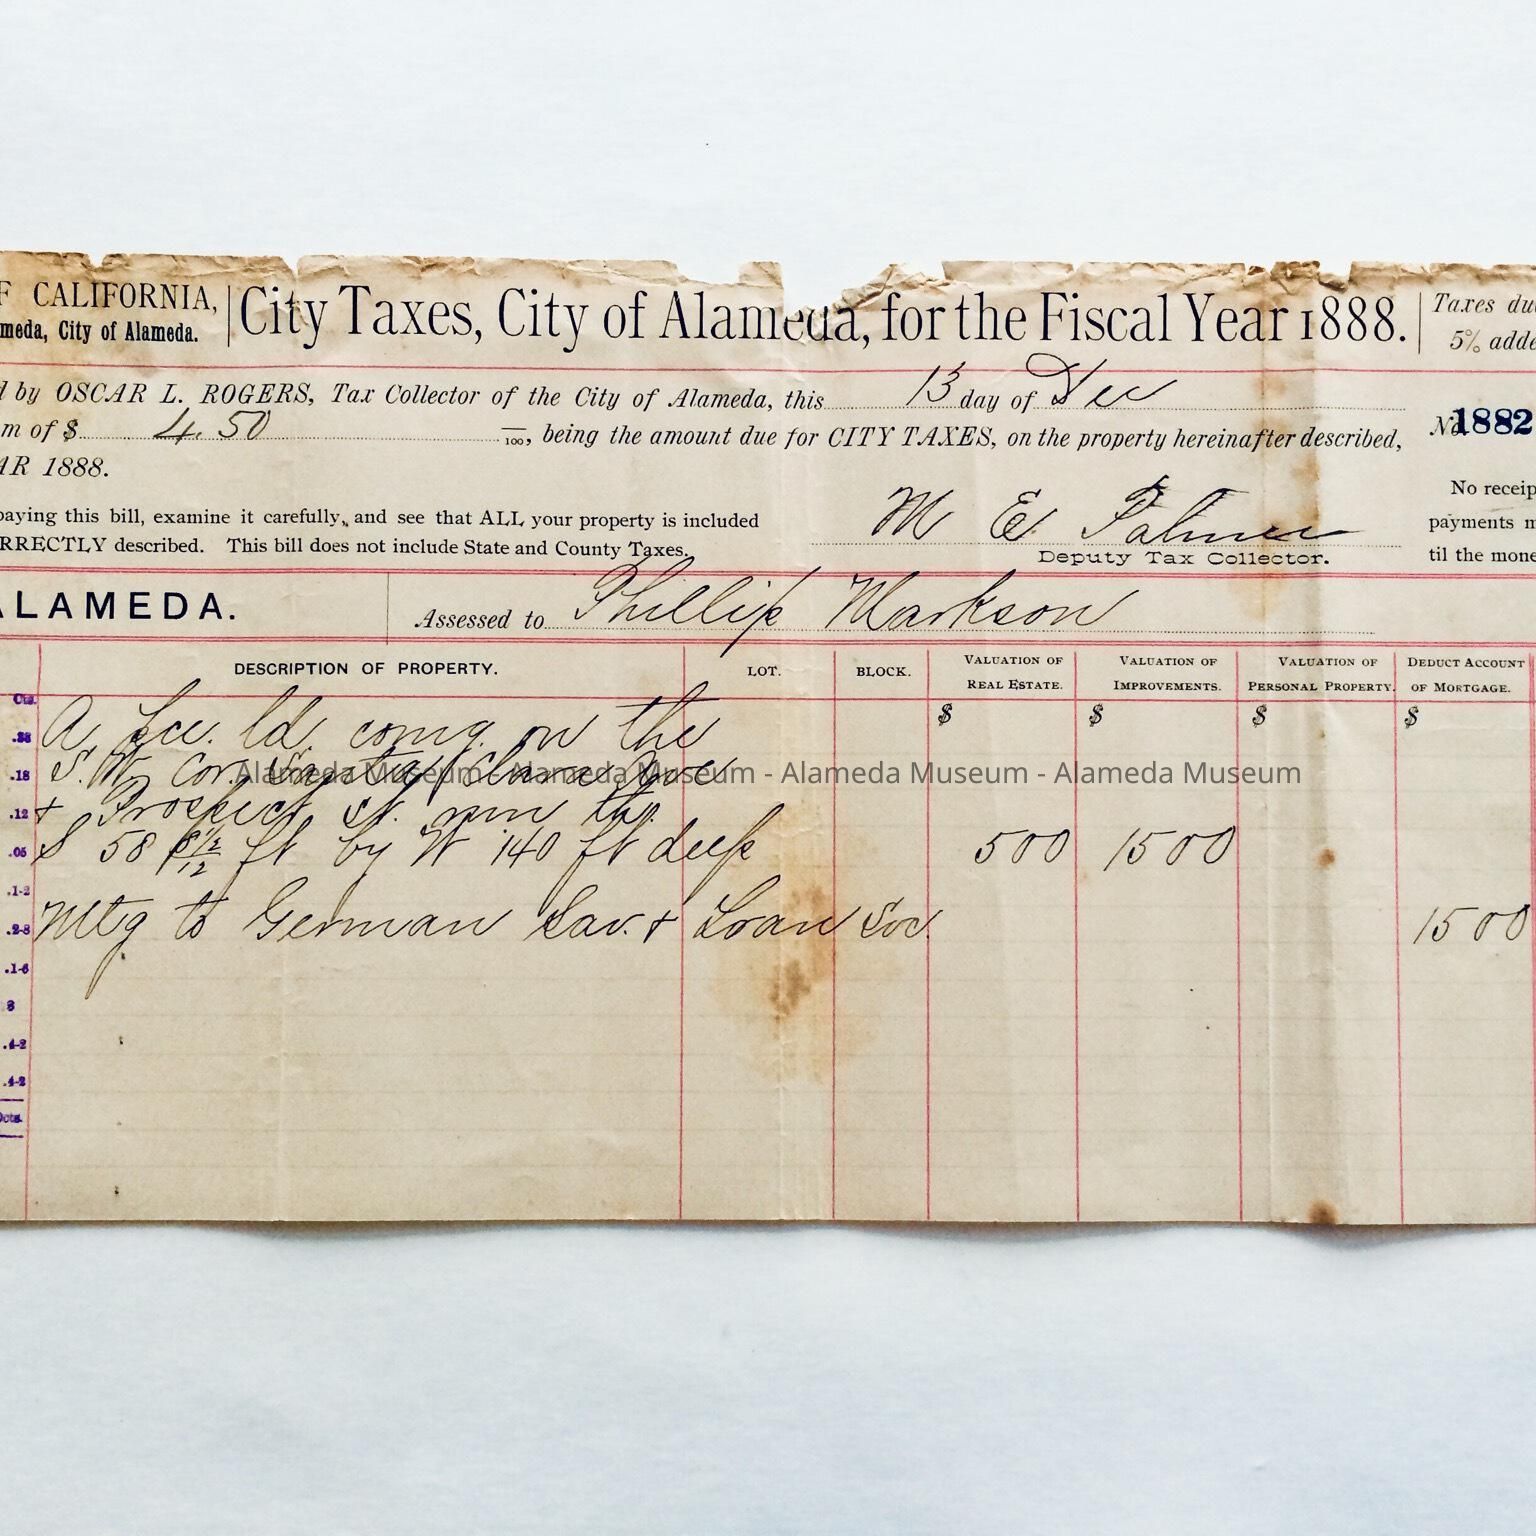 F CALIFORNIA,
meda, City of Alameda.
City Taxes, City of Alameda, for the Fiscal Year 1888.
Taxes du
5% adde
d by OSCAR L. ROGERS, Tax Collector of the City of Alameda, this 13 day of Dec
m of $ 4.50 /100, being the amount due for CITY TAXES, on the property hereinafter described,
No. 1882
AR 1888.
paying this bill, examine it carefully, and see that ALL your property is included
RRECTLY described. This bill does not include State and County Taxes.
M E Palmer
Deputy Tax Collector.
No receip
payments m
til the mone
ALAMEDA.
Assessed to Phillip Markson
DESCRIPTION OF PROPERTY.
LOT.
BLOCK.
VALUATION OF REAL ESTATE.
VALUATION OF IMPROVEMENTS.
VALUATION OF PERSONAL PROPERTY.
DEDUCT ACCOUNT OF MORTGAGE.
$ $ $ $
Cts.
.18
.12
.05
.1-2
.2-8
.1-6
3
.4-2
.4-2
cts.
A ld. comg. on the
S. W. Cor. Santa Clara Ave
& Prospect st. run th.
S 58 ft by W 140 ft deep 500 1500
Mtg to German Sav. & Loan Soc. 1500
Alameda Museum - Alameda Museum - Alameda Museum - Alameda Museum